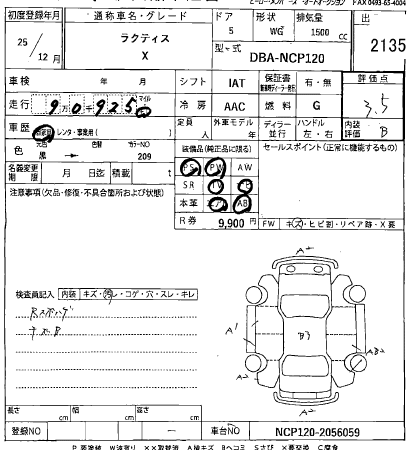 FAX 0493-65-4004
初度登録年月 通称車名・グレード ドア 形状 排気量 出
25年 12月 ラクティス X 5 WG 1500 cc 2135
型・式 DBA-NCP120
車検 年 月 シフト IAT 保証書 有・無 評価点
走行 90925 マイル 冷房 AAC 燃料 G 3.5
車歴 自家用 レンタ・事業用( ) 外車モデル ディーラー 並行 ハンドル 左・右 内装評価 B
色 元色 黒 → 色替 カラーNO 209 装備品(純正品に限る) セールスポイント(正常に機能するもの)
名義変更期限 月 日迄 積載 t PS PW AW
注意事項(欠品・修復・不具合箇所および状態) SR TV
本革 AB
R券 9,900円 FW キズ・ヒビ割・リペア跡・X要
検査員記入 内装 キズ・汚レ・コゲ・穴・スレ・キレ
A1 B3
長さ cm 幅 cm 高さ cm
登録NO ー 車台NO NCP120-2056059
P要塗装 W波有り XX取替済 A線キズ Bヘコミ Sさび X要交換 C腐食